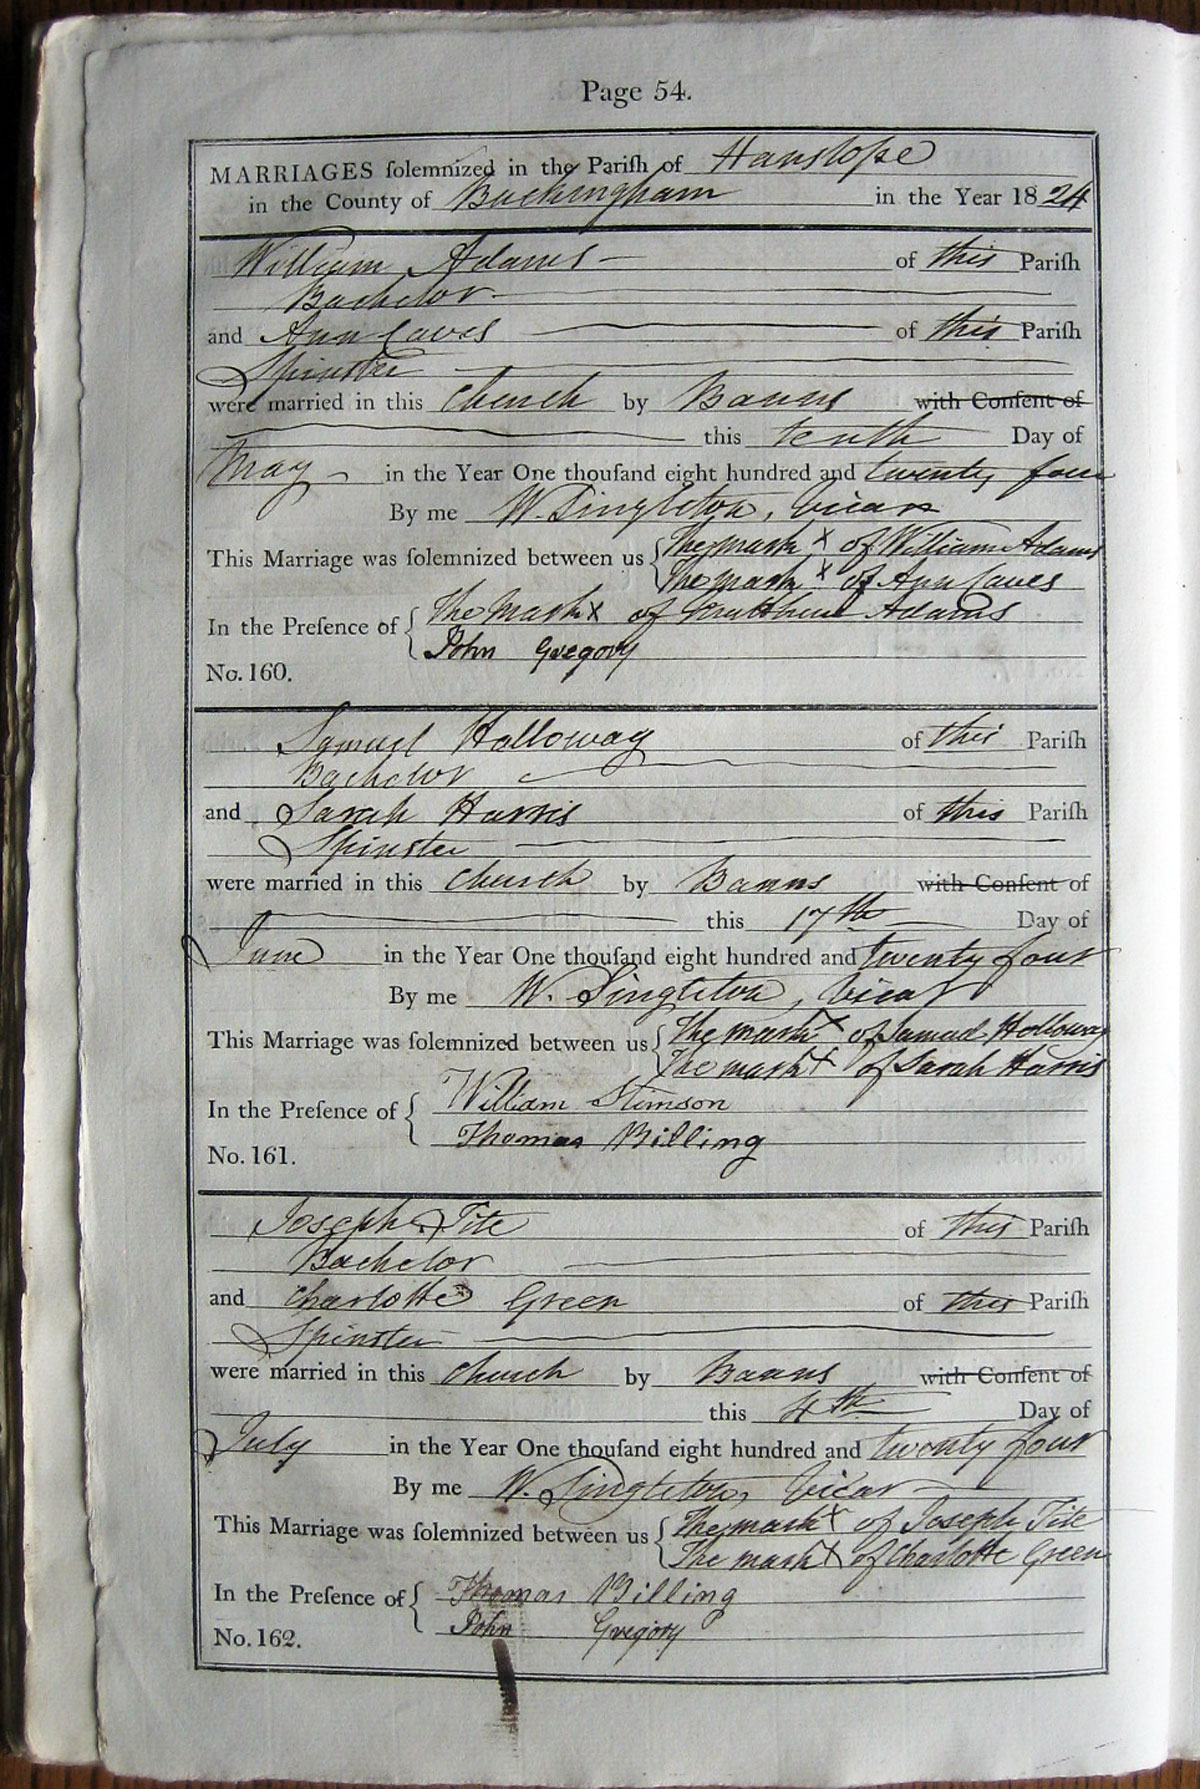 Page 54.
MARRIAGES ſolemnized in the Pariſh of Hanslope
in the County of Buckingham in the Year 1824
William Adams of this Pariſh
Bachelor
and Ann Caves of this Pariſh
Spinster
were married in this Church by Banns with Conſent of
this tenth Day of
May in the Year One thouſand eight hundred and twenty four
By me W. Singleton, Vicar
This Marriage was ſolemnized between us The mark X of William Adams
The mark X of Ann Caves
In the Preſence of The Mark X of Adams
John Gregory
No. 160.
Samuel Holloway of this Pariſh
Bachelor
and Sarah Harris of this Pariſh
Spinster
were married in this Church by Banns with Conſent of
this 17th Day of
June in the Year One thouſand eight hundred and twenty four
By me W. Singleton, Vicar
This Marriage was ſolemnized between us The mark X of Samuel Holloway
The mark X of Sarah Harris
In the Preſence of William Stimson
Thomas Billing
No. 161.
Joseph Tite of this Pariſh
Bachelor
and Charlotte Green of this Pariſh
Spinster
were married in this Church by Banns with Conſent of
this 4th Day of
July in the Year One thouſand eight hundred and twenty four
By me W. Singleton, Vicar
This Marriage was ſolemnized between us The mark X of Joseph Tite
The mark X of Charlotte Green
In the Preſence of Thomas Billing
John Gregory
No. 162.